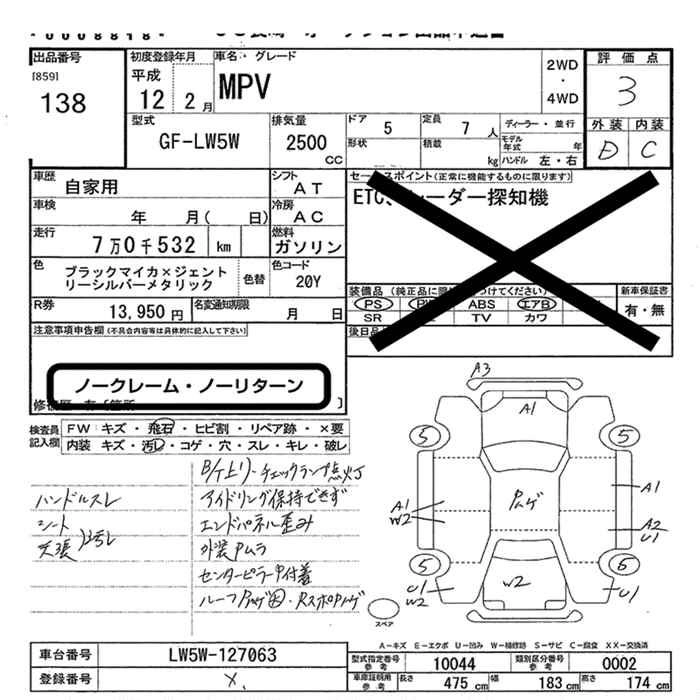 出品番号
[859]
138
初度登録年月
平成
12 2月
車名・グレード
MPV
2WD
・
4WD
評価点
3
外装 内装
D C
型式
GF-LW5W
排気量
2500
CC
ドア 5
定員 7人
形状
積載 kg
ディーラー・並行
モデル年式 年
ハンドル 左・右
車歴
自家用
シフト
AT
車検
年 月( 日)
冷房
AC
走行
7万0千532 km
燃料
ガソリン
色
ブラックマイカ×ジェント
リーシルバーメタリック
色替
色コード
20Y
R券
13,950円
名変通知期限
月 日
セールスポイント(正常に機能するものに限ります)
ETC、レーダー探知機
装備品
PS ABS エアB
SR TV カワ
新車保証書
有・無
後日品
注意事項申告欄(不具合内容等は具体的に記入して下さい)
ノークレーム・ノーリターン
検査員
記入欄
FW:キズ・飛石・ヒビ割・リペア跡・×要
内装 キズ・汚レ・コゲ・穴・スレ・キレ・破レ
B/T上リ・チェックランプ点灯
ハンドルスレ
アイドリング保持できず
シート
エンドパネル歪み
天張
汚レ
外装Pムラ
センターピラーP付着
A3
A1
5
5
A1
W2
A1
A2
U1
5
6
U1
W2
W2
U1
スペア
A-キズ E-エクボ U-凹み W-補修跡 S-サビ C-腐食 XX-交換済
車台番号
LW5W-127063
登録番号
×.
型式指定番号
参考
10044
類別区分番号
参考
0002
車庫証明用
参考
長さ 475cm
幅 183cm
高さ 174cm